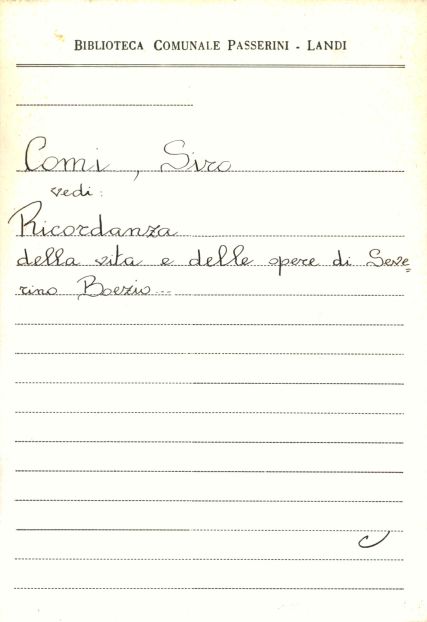 BIBLIOTECA COMUNALE PASSERINI - LANDI
Comi, Siro
vedi:
Ricordanza
della vita e delle opere di Seve=
rino Boezio...